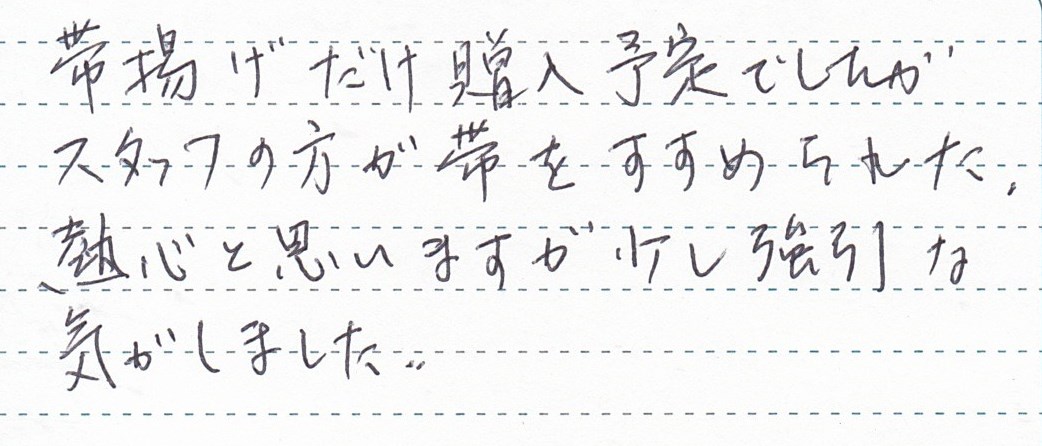 帯揚げだけ購入予定でしたが
スタッフの方が帯をすすめられた。
熱心と思いますが少し強引な
気がしました。